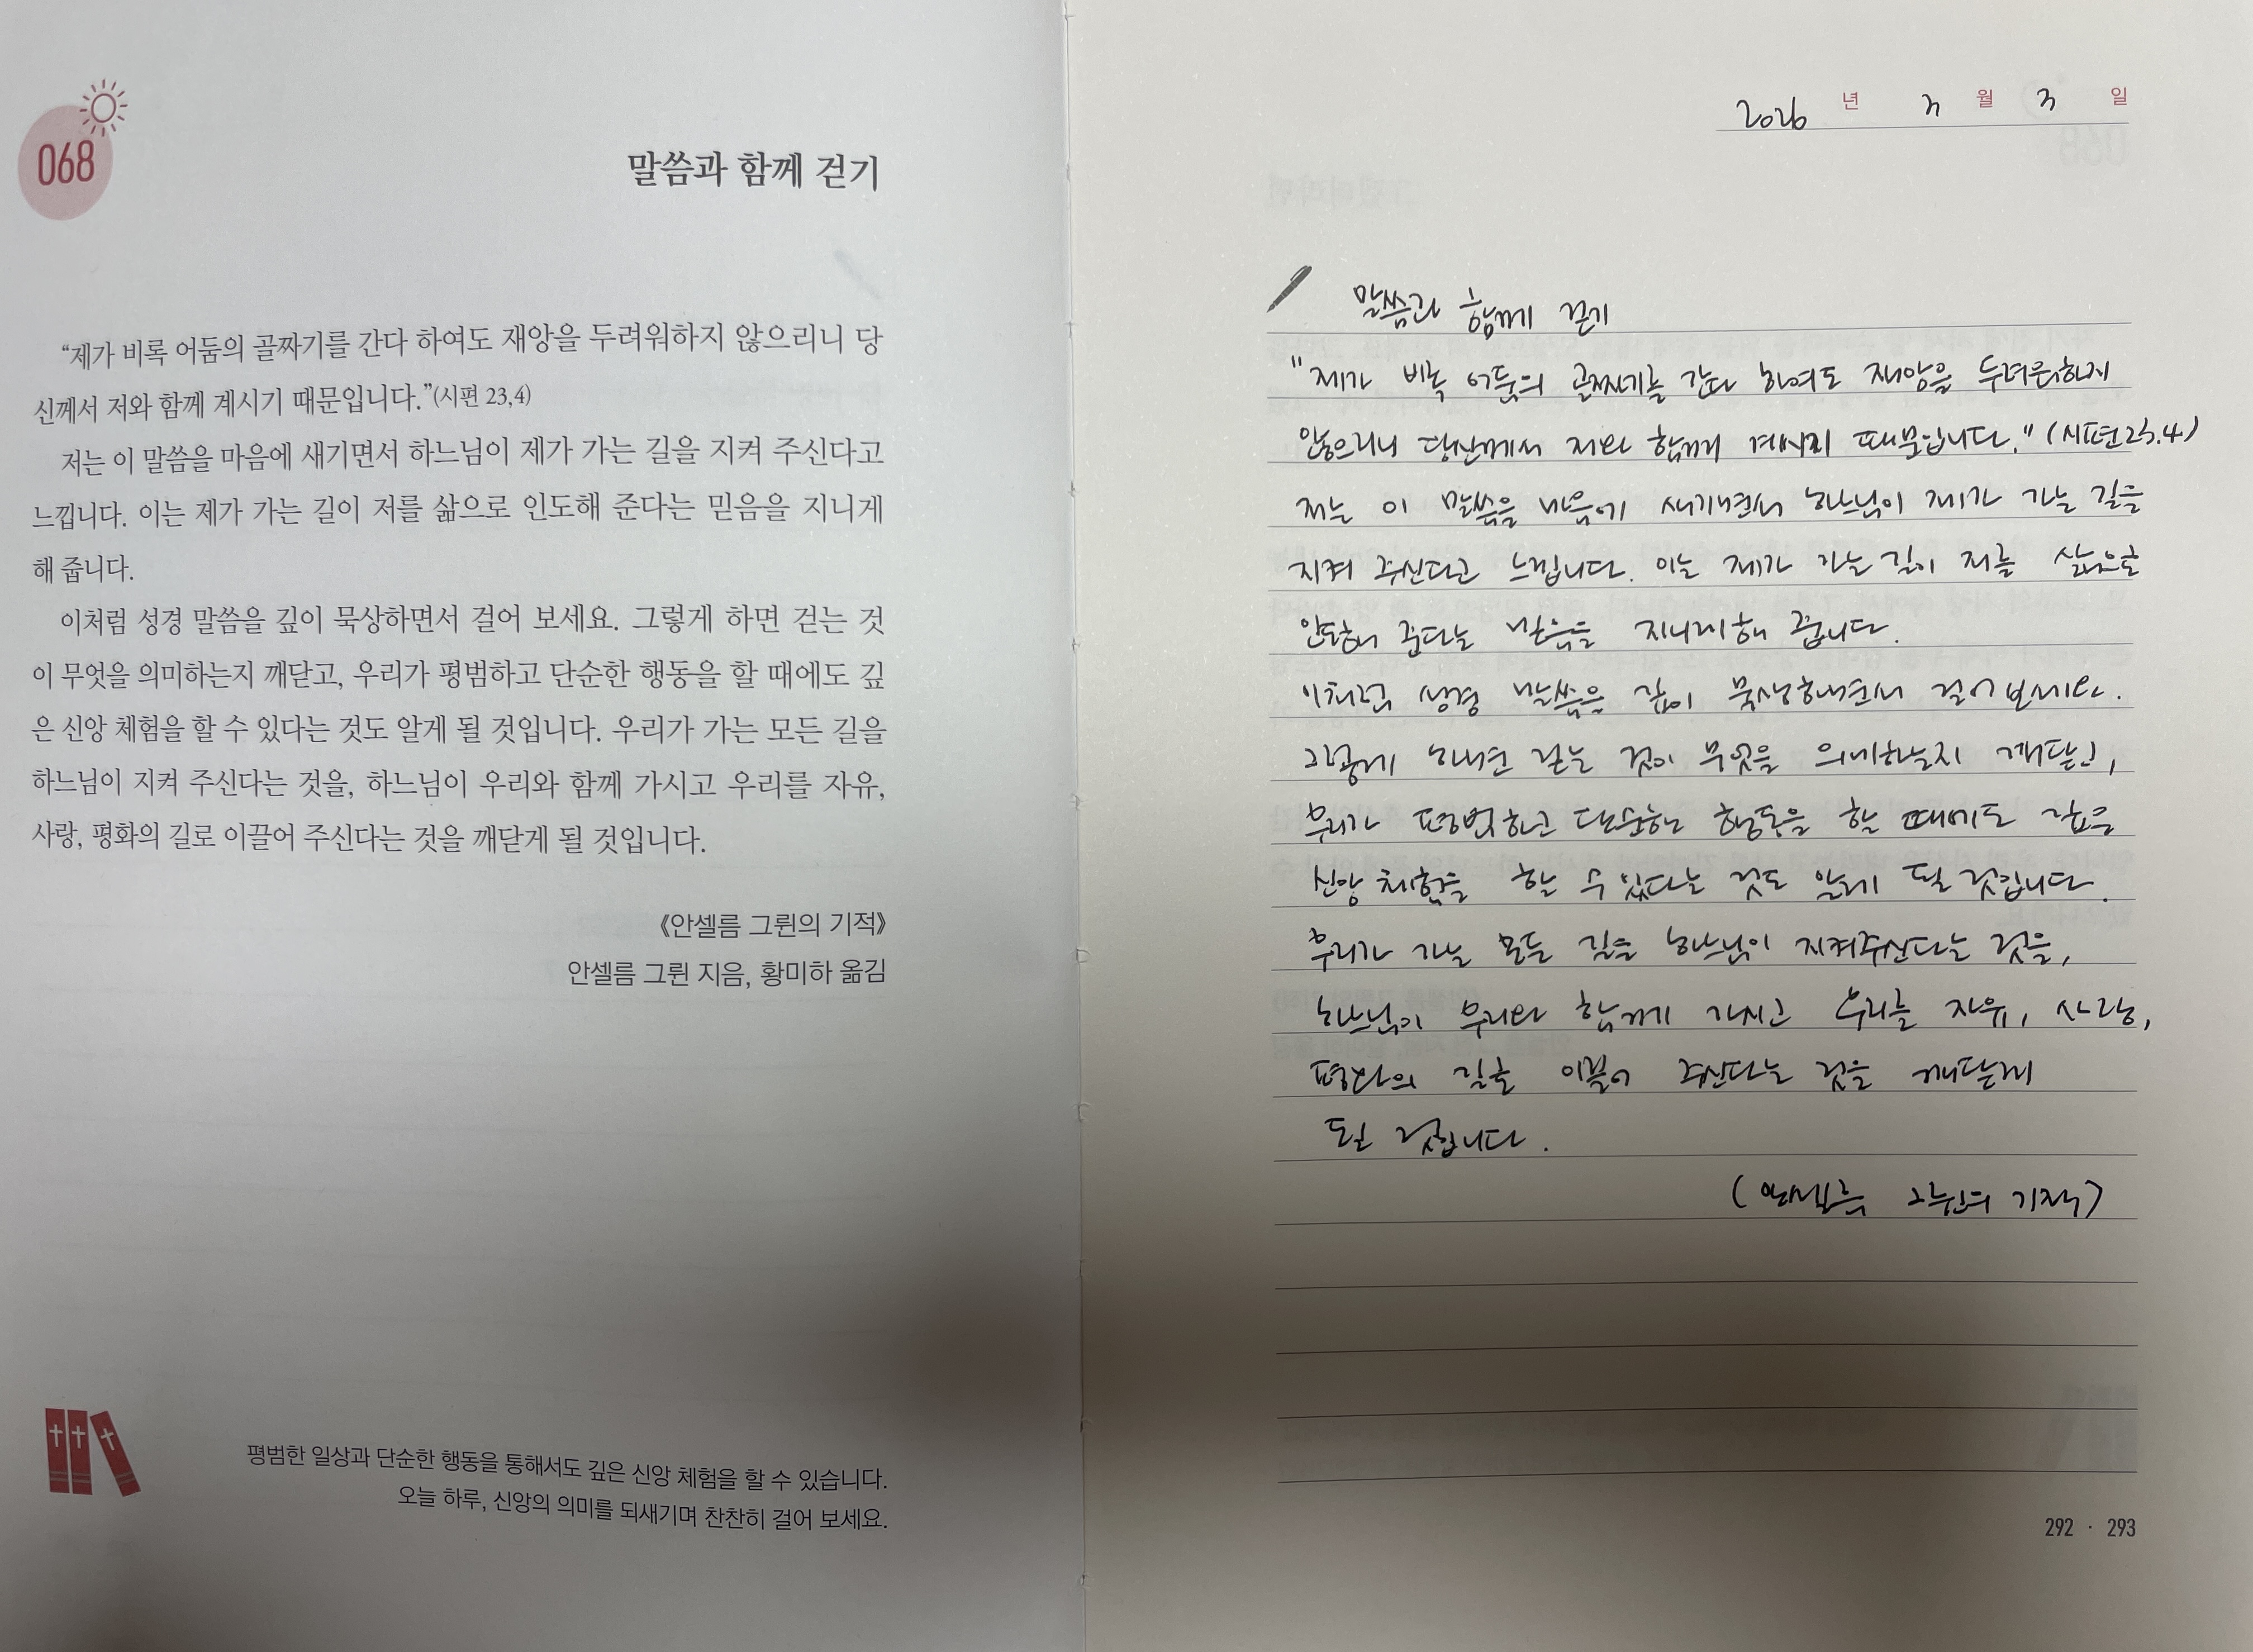 068
말씀과 함께 걷기
“제가 비록 어둠의 골짜기를 간다 하여도 재앙을 두려워하지 않으리니 당
신께서 저와 함께 계시기 때문입니다.”(시편 23,4)
저는 이 말씀을 마음에 새기면서 하느님이 제가 가는 길을 지켜 주신다고
느낍니다. 이는 제가 가는 길이 저를 삶으로 인도해 준다는 믿음을 지니게
해 줍니다.
이처럼 성경 말씀을 깊이 묵상하면서 걸어 보세요. 그렇게 하면 걷는 것
이 무엇을 의미하는지 깨닫고, 우리가 평범하고 단순한 행동을 할 때에도 깊
은 신앙 체험을 할 수 있다는 것도 알게 될 것입니다. 우리가 가는 모든 길을
하느님이 지켜 주신다는 것을, 하느님이 우리와 함께 가시고 우리를 자유,
사랑, 평화의 길로 이끌어 주신다는 것을 깨닫게 될 것입니다.
《안셀름 그륀의 기적》
안셀름 그륀 지음, 황미하 옮김
평범한 일상과 단순한 행동을 통해서도 깊은 신앙 체험을 할 수 있습니다.
오늘 하루, 신앙의 의미를 되새기며 찬찬히 걸어 보세요.
2026 년 3 월 3 일
말씀과 함께 걷기
"제가 비록 어둠의 골짜기를 간다 하여도 재앙을 두려워하지
않으리니 당신께서 저와 함께 계시기 때문입니다." (시편 23.4)
저는 이 말씀을 마음에 새기면서 하느님이 제가 가는 길을
지켜 주신다고 느낍니다. 이는 제가 가는 길이 저를 삶으로
인도해 준다는 믿음을 지니게 해 줍니다.
이처럼 성경 말씀을 깊이 묵상하면서 걸어 보세요.
그렇게 하면 걷는 것이 무엇을 의미하는지 깨닫고,
우리가 평범하고 단순한 행동을 할 때에도 깊은
신앙 체험을 할 수 있다는 것도 알게 될 것입니다.
우리가 가는 모든 길을 하느님이 지켜주신다는 것을,
하느님이 우리와 함께 가시고 우리를 자유, 사랑,
평화의 길로 이끌어 주신다는 것을 깨닫게
될 것입니다.
(안셀름 그륀의 기적)
292 · 293